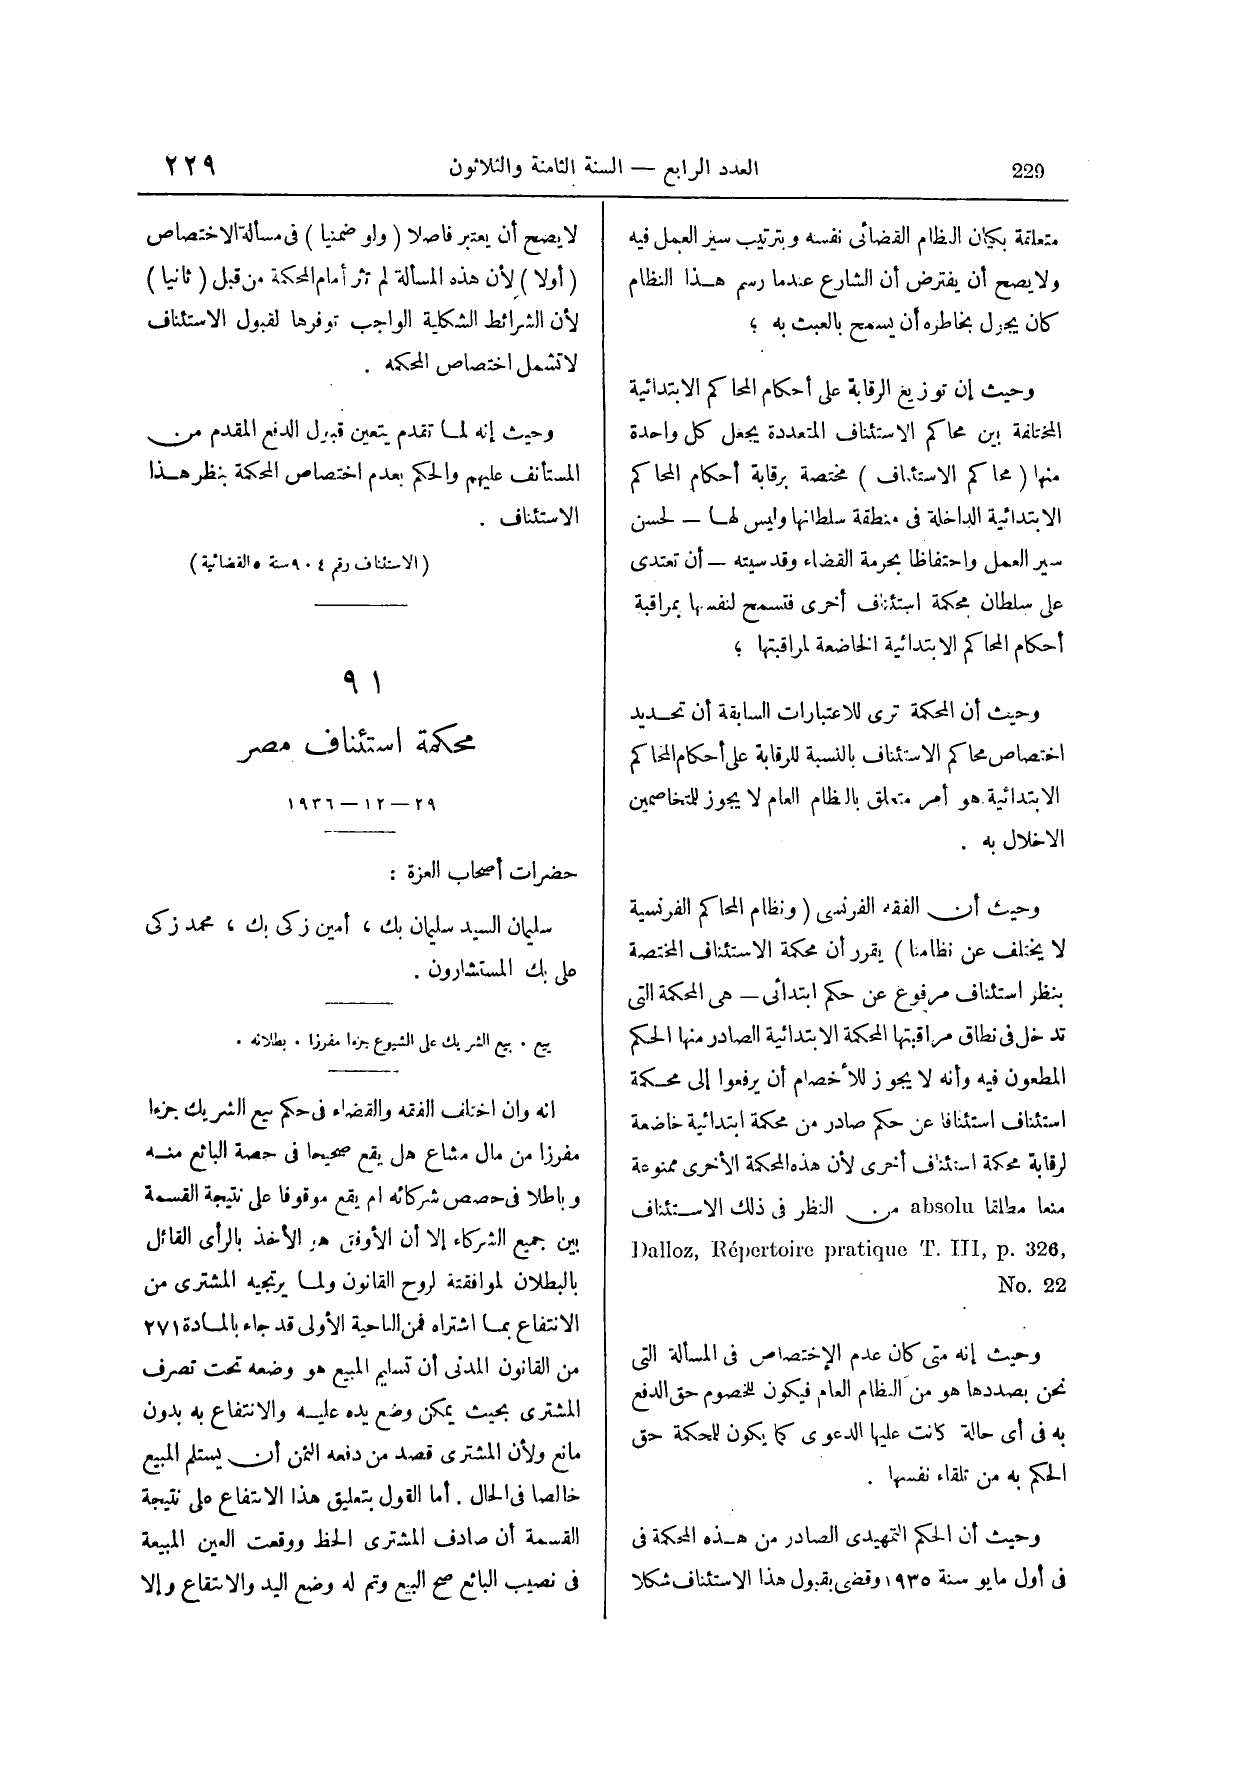 229
العدد الرابع — السنة الثامنة والثلاثون
٢٢٩
متعلقة بكيان النظام القضائى نفسه وبترتيب سير العمل فيه
ولا يصح أن يفترض أن الشارع عندما رسم هذا النظام
كان يجول بخاطره أن يسمح بالعبث به ؛
وحيث إن توزيع الرقابة على أحكام المحاكم الابتدائية
المختلفة بين محاكم الاستئناف المتعددة يجعل كل واحدة
منها ( محاكم الاستئناف ) مختصة برقابة أحكام المحاكم
الابتدائية الداخلة فى منطقة سلطانها وليس لها — لحسن
سير العمل واحتفاظا بحرمة القضاء وقدسيته — أن تعتدى
على سلطان محكمة استئناف أخرى فتسمح لنفسها بمراقبة
أحكام المحاكم الابتدائية الخاضعة لمراقبتها ؛
وحيث أن المحكمة ترى للاعتبارات السابقة أن تحديد
اختصاص محاكم الاستئناف بالنسبة للرقابة على أحكام المحاكم
الابتدائية هو أمر متعلق بالنظام العام لا يجوز للمتخاصمين
الاخلال به .
وحيث أن الفقه الفرنسى ( ونظام المحاكم الفرنسية
لا يختلف عن نظامنا ) يقرر أن محكمة الاستئناف المختصة
بنظر استئناف مرفوع عن حكم ابتدائى — هى المحكمة التى
تدخل فى نطاق مراقبتها المحكمة الابتدائية الصادر منها الحكم
المطعون فيه وأنه لا يجوز للأخصام أن يرفعوا إلى محكمة
استئناف استئنافا عن حكم صادر من محكمة ابتدائية خاضعة
لرقابة محكمة استئناف أخرى لأن هذه المحكمة الأخرى ممنوعة
منعا مطلقا absolu من النظر فى ذلك الاستئناف
Dalloz, Répertoire pratique T. III, p. 326,
No. 22
وحيث إنه متى كان عدم الإختصاص فى المسألة التى
نحن بصددها هو من النظام العام فيكون للخصوم حق الدفع
به فى أى حالة كانت عليها الدعوى كما يكون للمحكمة حق
الحكم به من تلقاء نفسها .
وحيث أن الحكم التمهيدى الصادر من هذه المحكمة فى
فى أول مايو سنة ١٩٣٥ وقضى بقبول هذا الاستئناف شكلا
لا يصح أن يعتبر فاصلا ( ولو ضمنيا ) فى مسألة الاختصاص
( أولا ) لأن هذه المسألة لم تثر أمام المحكمة من قبل ( ثانيا )
لأن الشرائط الشكلية الواجب توفرها لقبول الاستئناف
لا تشمل اختصاص المحكمة .
وحيث إنه لما تقدم يتعين قبول الدفع المقدم من
المستأنف عليهم والحكم بعدم اختصاص المحكمة بنظر هذا
الاستئناف .
( الاستئناف رقم ٩٠٤ سنة ٥ القضائية )
٩١
محكمة استئناف مصر
٢٩ — ١٢ — ١٩٣٦
حضرات أصحاب العزة :
سليمان السيد سليمان بك ، أمين زكى بك ، محمد زكى
على بك المستشارون .
بيع . بيع الشريك على الشيوع جزءا مفرزا . بطلانه .
انه وان اختلف الفقه والقضاء فى حكم بيع الشريك جزءا
مفرزا من مال مشاع هل يقع صحيحا فى حصة البائع منه
وباطلا فى حصص شركائه ام يقع موقوفا على نتيجة القسمة
بين جميع الشركاء إلا أن الأوفق هو الأخذ بالرأى القائل
بالبطلان لموافقته لروح القانون ولما يرتجيه المشترى من
الانتفاع بما اشتراه فمن الناحية الأولى قد جاء بالمادة ٢٧١
من القانون المدنى أن تسليم المبيع هو وضعه تحت تصرف
المشترى بحيث يمكن وضع يده عليه والانتفاع به بدون
مانع ولأن المشترى قصد من دفعه الثمن أن يستلم المبيع
خالصا فى الحال . أما القول بتعليق هذا الانتفاع على نتيجة
القسمة أن صادف المشترى الحظ ووقعت العين المبيعة
فى نصيب البائع صح البيع وتم له وضع اليد والانتفاع وإلا